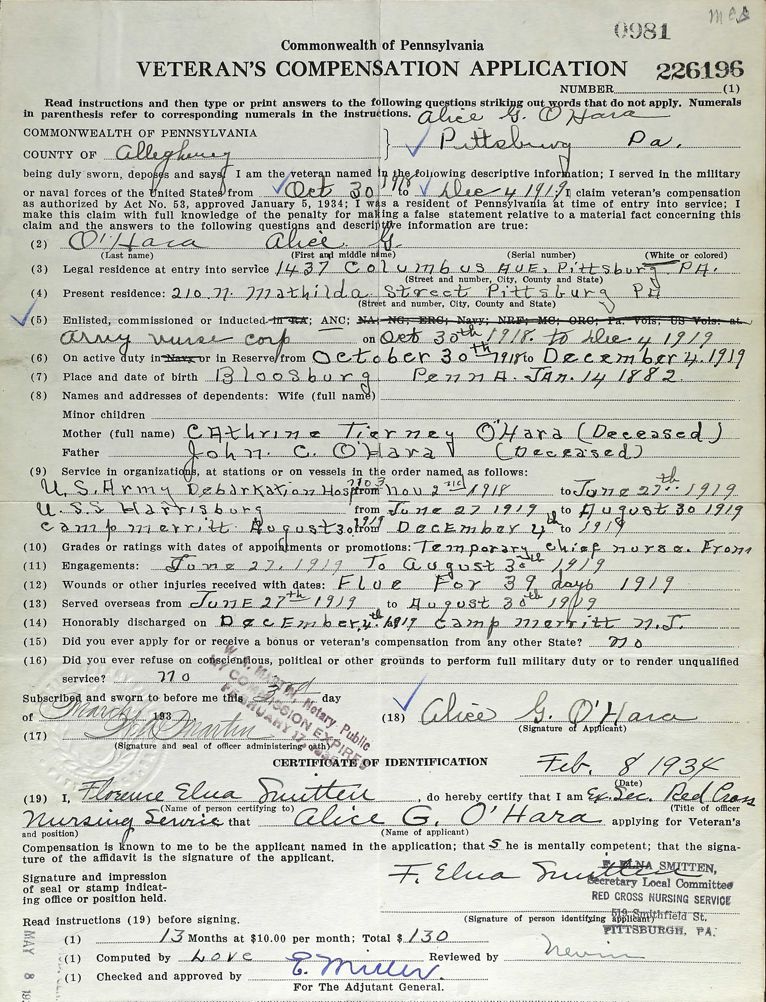 0981
Commonwealth of Pennsylvania
VETERAN'S COMPENSATION APPLICATION 226196
NUMBER (1)
Read instructions and then type or print answers to the following questions striking out words that do not apply. Numerals
in parenthesis refer to corresponding numerals in the instructions. Alice G. O'Hara
COMMONWEALTH OF PENNSYLVANIA
COUNTY OF Allegheny } Pittsburg Pa.
being duly sworn, deposes and says, I am the veteran named in the following descriptive information; I served in the military
or naval forces of the United States from Oct 30 1918 to Dec 4 1919 I claim veteran's compensation
as authorized by Act No. 53, approved January 5, 1934; I was a resident of Pennsylvania at time of entry into service; I
make this claim with full knowledge of the penalty for making a false statement relative to a material fact concerning this
claim and the answers to the following questions and descriptive information are true:
(2) O'Hara Alice G.
(Last name) (First and middle name) (Serial number) (White or colored)
(3) Legal residence at entry into service 1437 Columbus Ave, Pittsburg PA.
(Street and number, City, County and State)
(4) Present residence: 210 N. Mathilda Street Pittsburg PA
(Street and number, City, County and State)
(5) Enlisted, commissioned or inducted in RA; ANC; NA; NG; ERC; Navy; NRF; MC; ORC; Pa. Vols; US Vols; at
army nurse corp on Oct 30th 1918. to Dec 4 1919
(6) On active duty in Navy or in Reserve from October 30th 1918 to December 4. 1919
(7) Place and date of birth Bloosburg Penna. Jan. 14 1882
(8) Names and addresses of dependents: Wife (full name)
Minor children
Mother (full name) Cathrine Tierney O'Hara (Deceased)
Father John. C. O'Hara (Deceased)
(9) Service in organizations, at stations or on vessels in the order named as follows:
U.S. Army Debarkation Hosp no 3 from Nov 2nd 1918 to June 27th 1919
U.S.S Harrisburg from June 27 1919 to August 30 1919
Camp merritt August 30 1919 from December 4th to 1919
(10) Grades or ratings with dates of appointments or promotions: Temporary chief nurse. From
(11) Engagements: June 27, 1919 To August 30th 1919
(12) Wounds or other injuries received with dates: Flue For 39 days 1919
(13) Served overseas from June 27th 1919 to August 30th 1919
(14) Honorably discharged on December, 4th 1919 Camp merritt N.J.
(15) Did you ever apply for or receive a bonus or veteran's compensation from any other State? no
(16) Did you ever refuse on conscientious, political or other grounds to perform full military duty or to render unqualified
service? no
W. A. MARTIN, Notary Public
MY COMMISSION EXPIRES
FEBRUARY 17,
Subscribed and sworn to before me this 3rd day
of March 193
(18) Alice G. O'Hara
(Signature of Applicant)
(17) W.A. Martin
(Signature and seal of officer administering oath)
CERTIFICATE OF IDENTIFICATION Feb. 8 1934
(Date)
(19) I, Florence Elna Smitten, do hereby certify that I am Ex. Sec. Red Cross
(Name of person certifying to) (Title of officer
Nursing Service that Alice G. O'Hara applying for Veteran's
and position) (Name of applicant)
Compensation is known to me to be the applicant named in the application; that she is mentally competent; that the signa-
ture of the affidavit is the signature of the applicant.
Signature and impression
of seal or stamp indicat-
ing office or position held.
F. Elna Smitten
F. ELNA SMITTEN,
Secretary Local Committee
RED CROSS NURSING SERVICE
519 Smithfield St.
PITTSBURGH, PA.
Read instructions (19) before signing.
(Signature of person identifying applicant)
(1) 13 Months at $10.00 per month; Total $ 130
(1) Computed by Love Reviewed by Nevin
(1) Checked and approved by E. Miller
For The Adjutant General.
MAY 8